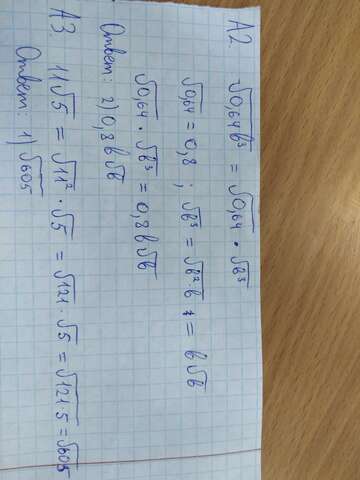 А2 √0,64b³ = √0,64 · √b³
√0,64 = 0,8 ; √b³ = √b²·b = b√b
√0,64 · √b³ = 0,8b√b
Ответ: 2) 0,8b√b
А3 11√5 = √11² · √5 = √121 · √5 = √121·5 = √605
Ответ: 1) √605